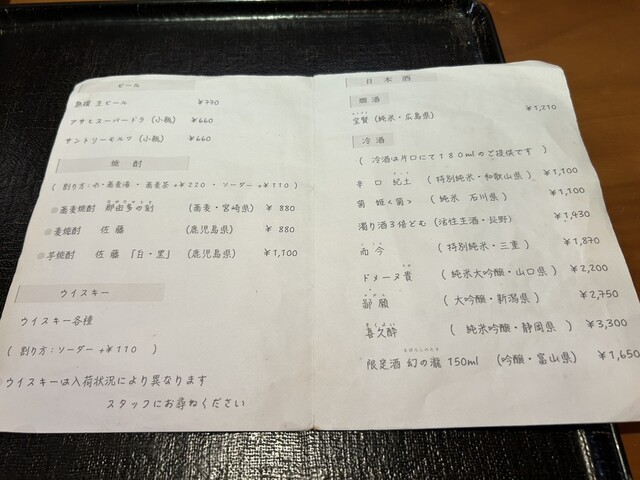 ビール
生ビール ¥770
アサヒスーパードライ (小瓶) ¥660
サントリーモルツ (小瓶) ¥660
焼酎
( 割り方:水・蕎麦湯 ・ 蕎麦茶 +¥220 ・ ソーダー +¥110 )
◎蕎麦焼酎 那由多の刻 (蕎麦・宮崎県) ¥ 880
◎麦焼酎 佐藤 (鹿児島県) ¥ 880
◎芋焼酎 佐藤 「白・黒」 (鹿児島県) ¥1,100
ウイスキー
ウイスキー各種
( 割り方:ソーダー +¥110 )
ウイスキーは入荷状況により異なります
スタッフにお尋ねください
日本酒
燗酒
宝賢 (純米・広島県) ¥1,210
冷酒
( 冷酒は片口にて180mlのご提供です )
辛口 紀土 ( 特別純米・和歌山県) ¥1,100
菊姫<菊> ( 純米 石川県) ¥1,100
濁り酒3倍どむ (活性生酒・長野) ¥1,430
而今 ( 特別純米・三重) ¥1,870
ドメーヌ貴 ( 純米大吟醸・山口県) ¥2,200
鄙願 ( 大吟醸・新潟県) ¥2,750
喜久酔 ( 純米吟醸・静岡県 ) ¥3,300
限定酒 幻の瀧 150ml (吟醸・富山県) ¥1,650